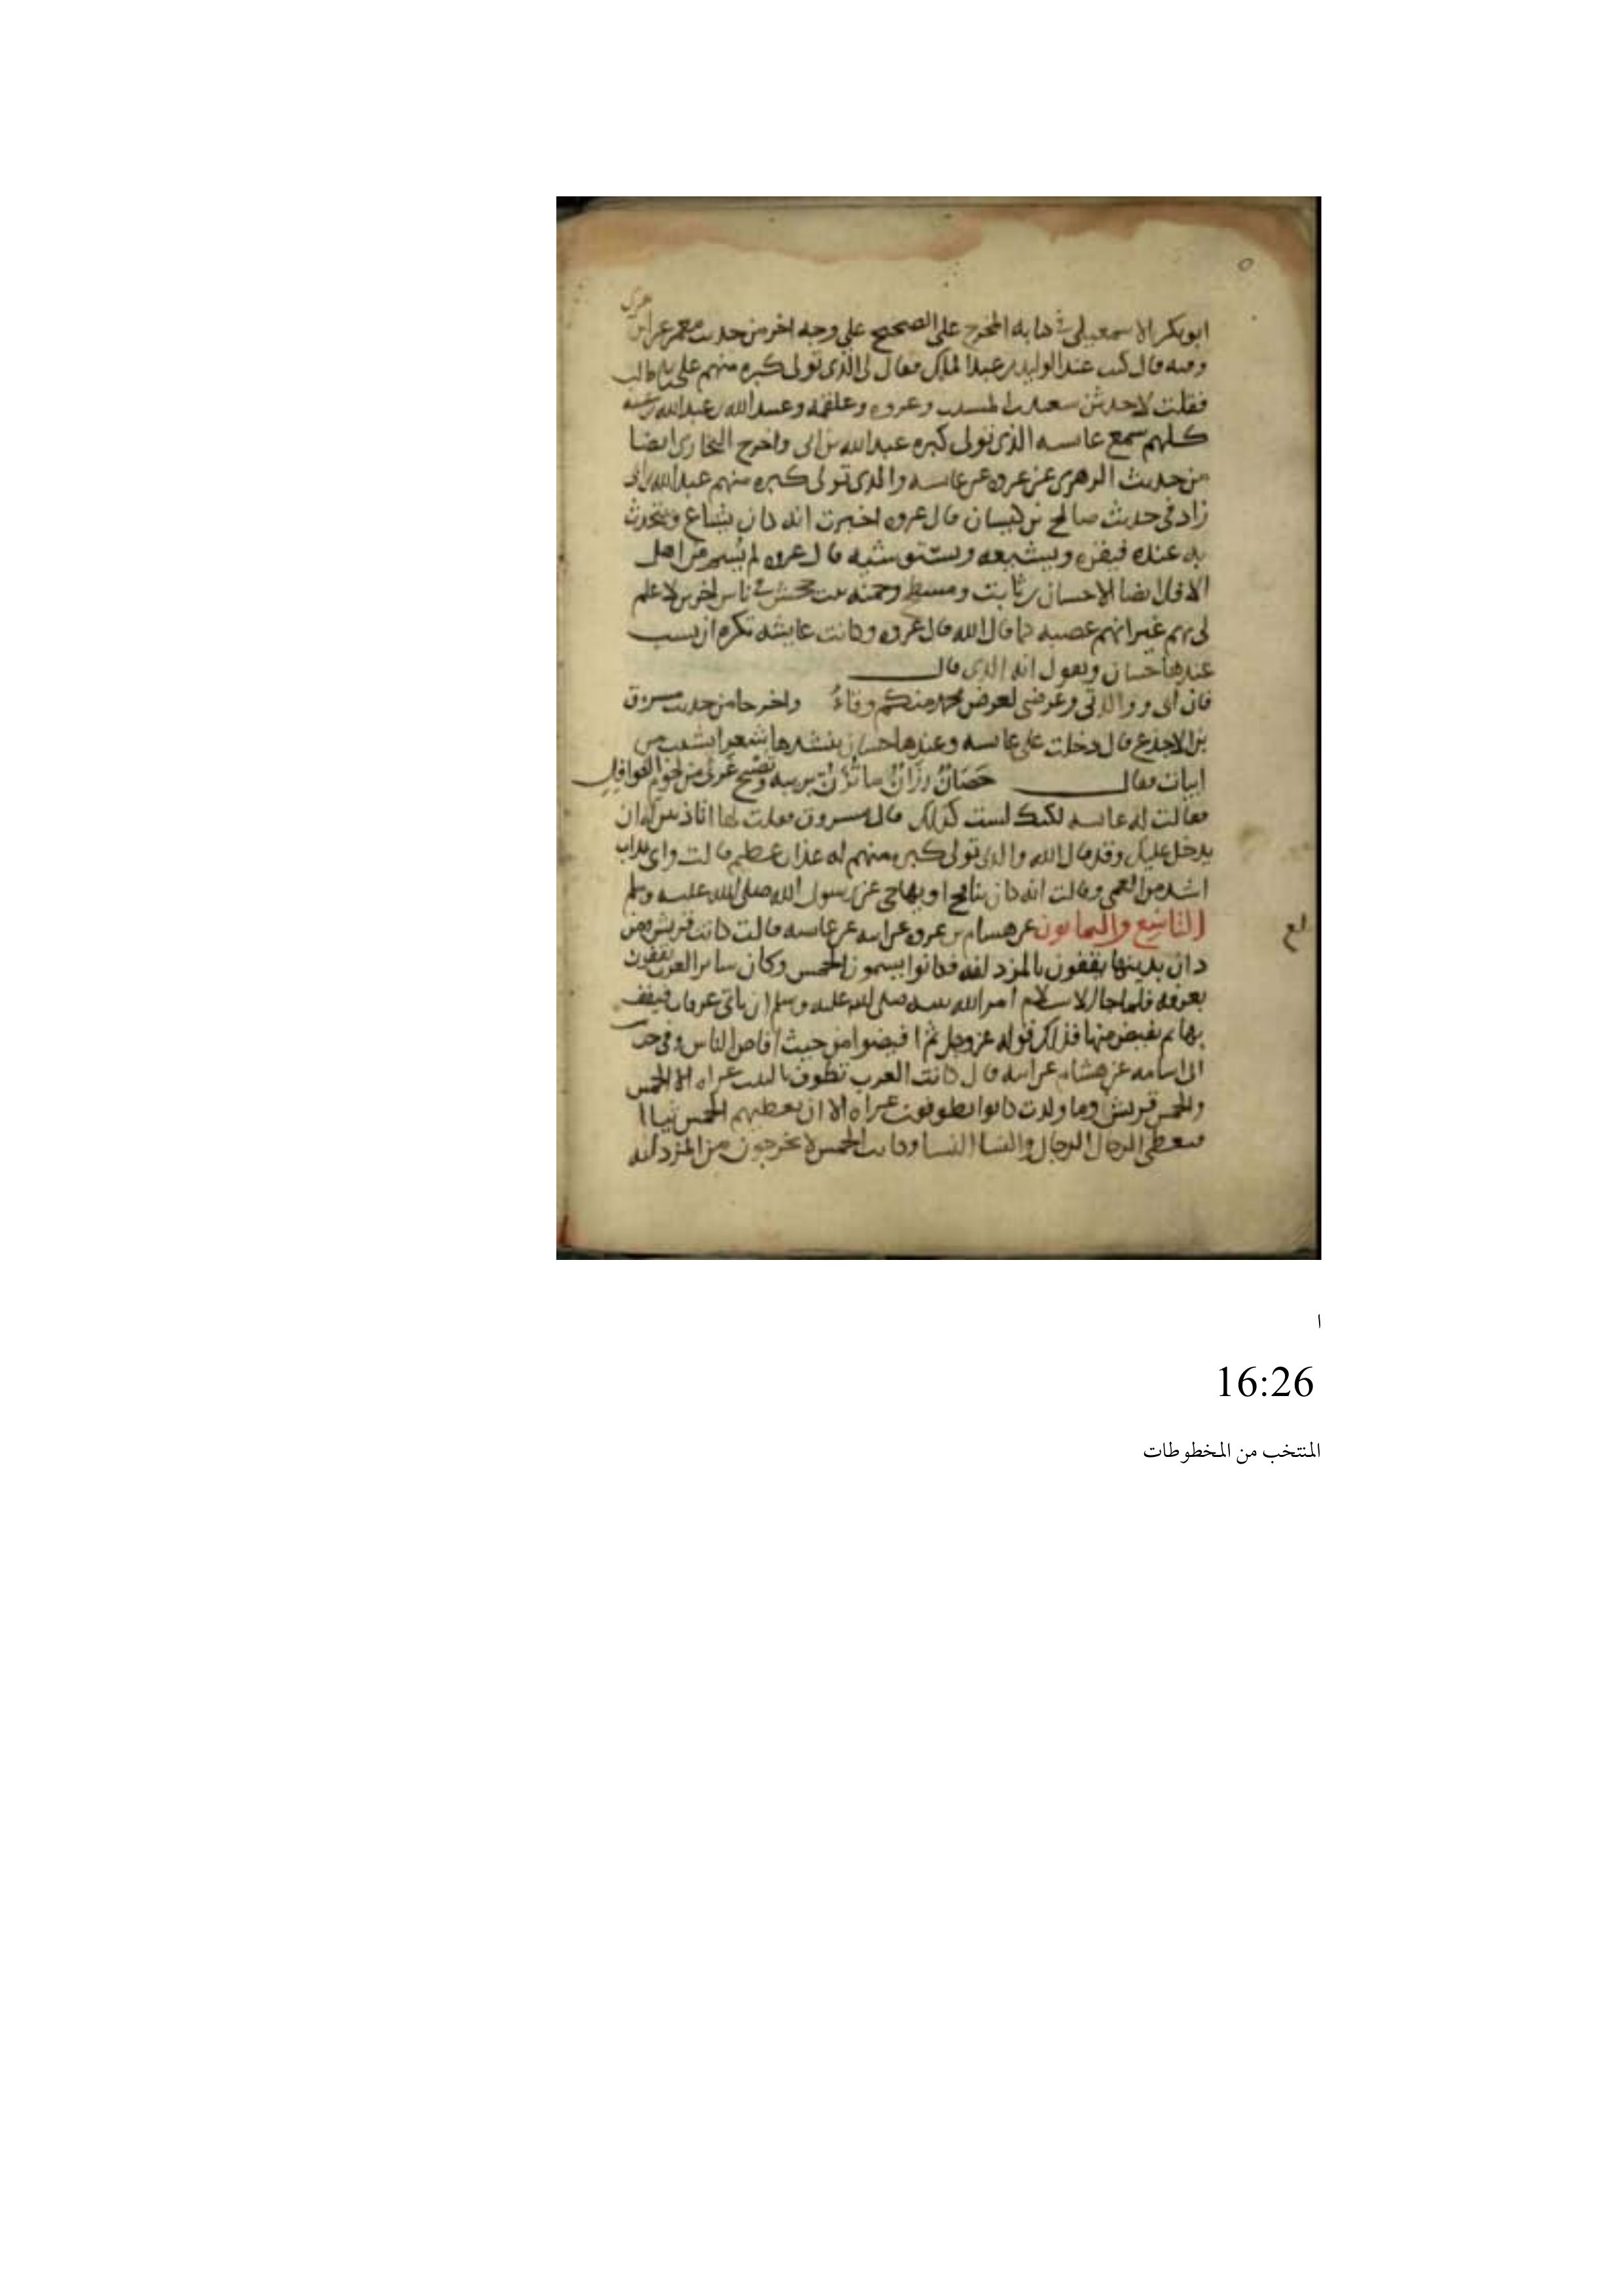 ابوبكر الاسمعيلي في كتابه المخرج على الصحيح على وجه اخر من حديث معمر عن
هري
وفيه قال كنت عند الوليد بن عبد الملك فقال لي الذي تولى كبره منهم علي بن ابي طالب
فقلت لا حدثني سعيد بن المسيب وعروه وعلقمه وعبيد الله بن عبد الله بن عتبه
كلهم سمع عايشه الذي تولى كبره عبد الله بن ابي واخرج البخاري ايضا
من حديث الزهري عن عروه عن عايشه والذي تولى كبره منهم عبد الله بن ابي
زاد في حديث صالح بن كيسان قال عروه اخبرت انه كان يشاع ويتحدث
به عنده فيقره ويشيعه ويستوشيه قال عروه لم يسم من اهل
الافك ايضا الا حسان بن ثابت ومسطح وحمنه بنت جحش في ناس اخرين لا علم
لي بهم غير انهم عصبه كما قال الله قال عروه وكانت عايشه تكره ان يسب
عندها حسان وتقول انه الذي قال
فان ابي ووالدتي وعرضي لعرض محمد منكم وقاءُ واخرجا من حديث مسروق
بن الاجدع قال دخلت على عايشه وعندها حسان ينشدها شعرا يشبب من
ابيات فقال حَصَانٌ رزَانٌ ما تُزَنُّ بريبه وتصبح غرثى من لحوم الغوافل
فقالت له عايشه لكنك لست كذلك قال مسروق فقلت لها اتاذنين له ان
يدخل عليك وقد قال الله والذي تولى كبره منهم له عذاب عظيم قالت واي عذاب
اشد من العمى وقالت انه كان ينافح او يهاجي عن رسول الله صلى الله عليه وسلم
التاسع والثمانون عن هشام بن عروه عن ابيه عن عايشه قالت كانت قريش ومن
كان يدينها يقفون بالمزدلفه فكانوا يسمون الحمس وكان ساير العرب يقفون
بعرفه فلما جا الاسلام امر الله نبيه صلى الله عليه وسلم ان ياتي عرفات فيقف
بها ثم يفيض منها فذلك قوله عز وجل ثم افيضوا من حيث افاض الناس وفي حديث
ابي اسامه عن هشام عن ابيه قال كانت العرب تطوف بالبيت عراه الا الحمس
والحمس قريش وما ولدت كانوا يطوفون عراه الا ان يعطيهم الحمس ثيابا
فيعطي الرجال الرجال والنسا النسا وكانت الحمس لا يخرجون من المزدلفه
ا
16:26
المنتخب من المخطوطات